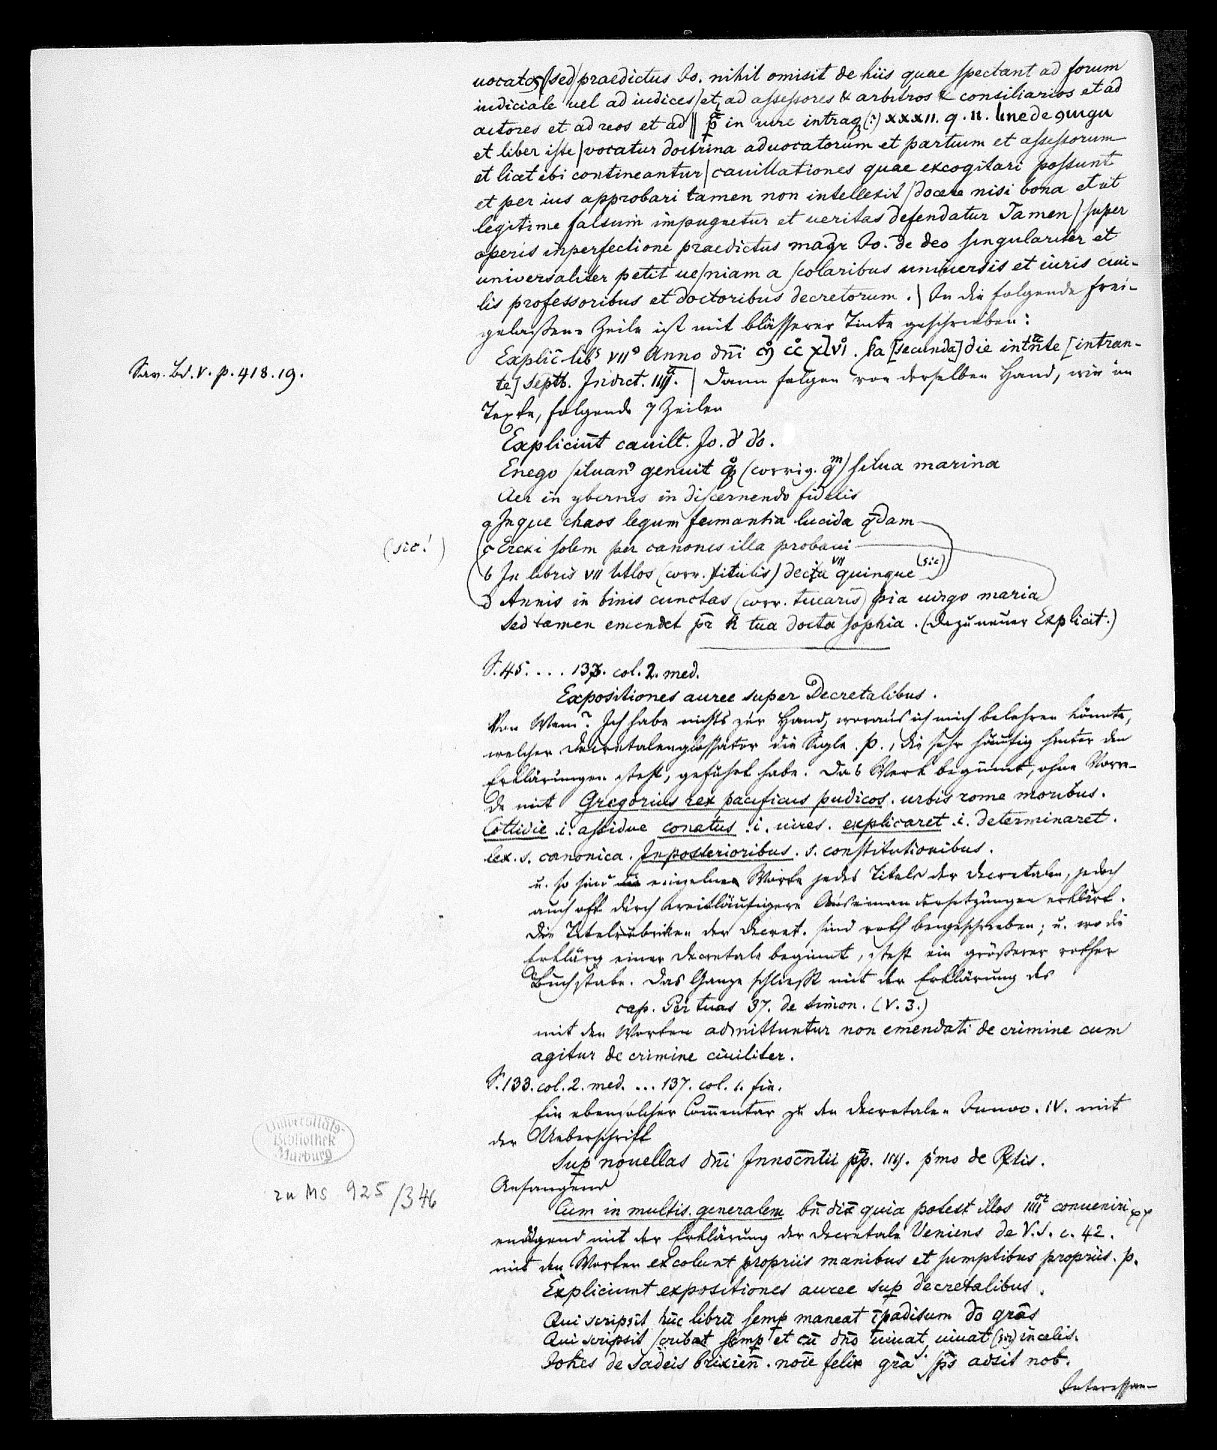 uocatos/sed/praedictus Jo. nihil omisit de hiis quae spectant ad forum
iudiciale uel ad iudices/et ad assessores & arbitros & consiliarios et ad
actores et ad reos et ad || in iure xxxii. q. ii.
et liber iste/vocatur doctrina aduocatorum et partium et assessorum
et licet ibi contineantur/cauillationes quae excogitari possunt
et per ius approbari tamen non intellexit/docere nisi bona et ut
legitime falsum impugnetur et ueritas defendatur Tamen/super
operis inperfectione praedictus magr Jo. de deo singulariter et
universaliter petit ue/niam a scolaribus universis et iuris ciui-
lis professoribus et doctoribus decretorum.| In die folgende frei-
gelassene Zeile ist mit blässerer Tinte geschrieben:
Explic libs VIIo Anno dni [secunda] die [intran-
te] Septb. Indict. | Dann folgen von derselben Hand, wie im
Sav. Bd. V. p. 418. 19.
Texte, folgende 7 Zeilen
Expliciunt cauill. Jo. d do.
Enego siluan genuit (corrig. ) silua marina
Aer in ybernis in discernendo fidelis
a Inque chaos legum fumantia lucida qdam
(sic!) c Erexi solem per canones illa probaui
b In libris VII (corr. titulis) quinque (sic)
d Annis in binis cunctas (corr. ) pia uirgo maria
Sed tamen emendet tua docta sophia. (Dazu neuer Explicit.)
S. 45. ... 133. col. 2. med.
Expositiones auree super Decretalibus.
Von Wem? Ich habe nichts zur Hand, woraus ich mich belehren könnte,
welcher Decretalenglossator die Sigle .p., die sehr häufig hinter den
Erklärungen steht, geführt habe. Das Werk beginnt, ohne Vorre-
de mit Gregorius rex pacificus pudicos. urbis rome moribus.
Cottidie .i. assidue conatus .i. uires. explicaret .i. determinaret.
lex. s. canonica. Inposterioribus. s. constitutionibus.
u. so sind einzelne Worte jedes Titels der Decretalen, jedoch
auch oft durch weitläufigere Auseinandersetzungen erklärt.
Die Titelrubriken der Decret. sind roth beygeschrieben; u. wo die
Erklärg einer Decretale beginnt, steht ein größerer rother
Buchstabe. Das Ganze schließt mit der Erklärung des
cap. Per tuas 37. de simon. (V. 3.)
mit den Worten admittuntur non emendati de crimine cum
agitur de crimine ciuiliter.
S. 133. col. 2. med. ... 137. col. 1. fin.
Ein ebensolcher Commentar zu den Decretalen Innoc. IV. mit
der Ueberschrift
Sup nouellas dni Innocntii pp. IIII. pmo de Rptis.
Anfangend
Cum in multis. generalem quia potest illos conueniri
endigend mit der Erklärung der Decretale Veniens de V. S. c. 42.
mit den Worten excolunt propriis manibus et sumptibus propriis. p.
Expliciunt expositiones auree sup decretalibus.
Qui scripsit huc libru semp maneat ipadisum do gras
Qui scripsit scribat semp et cu dno uiuat uiuat (sic) incelis.
Johes de Sadeis brixien. noie felix gra. sps adsit nob.
Interessan-
Universitäts-
Bibliothek
Marburg
zu MS 925/346